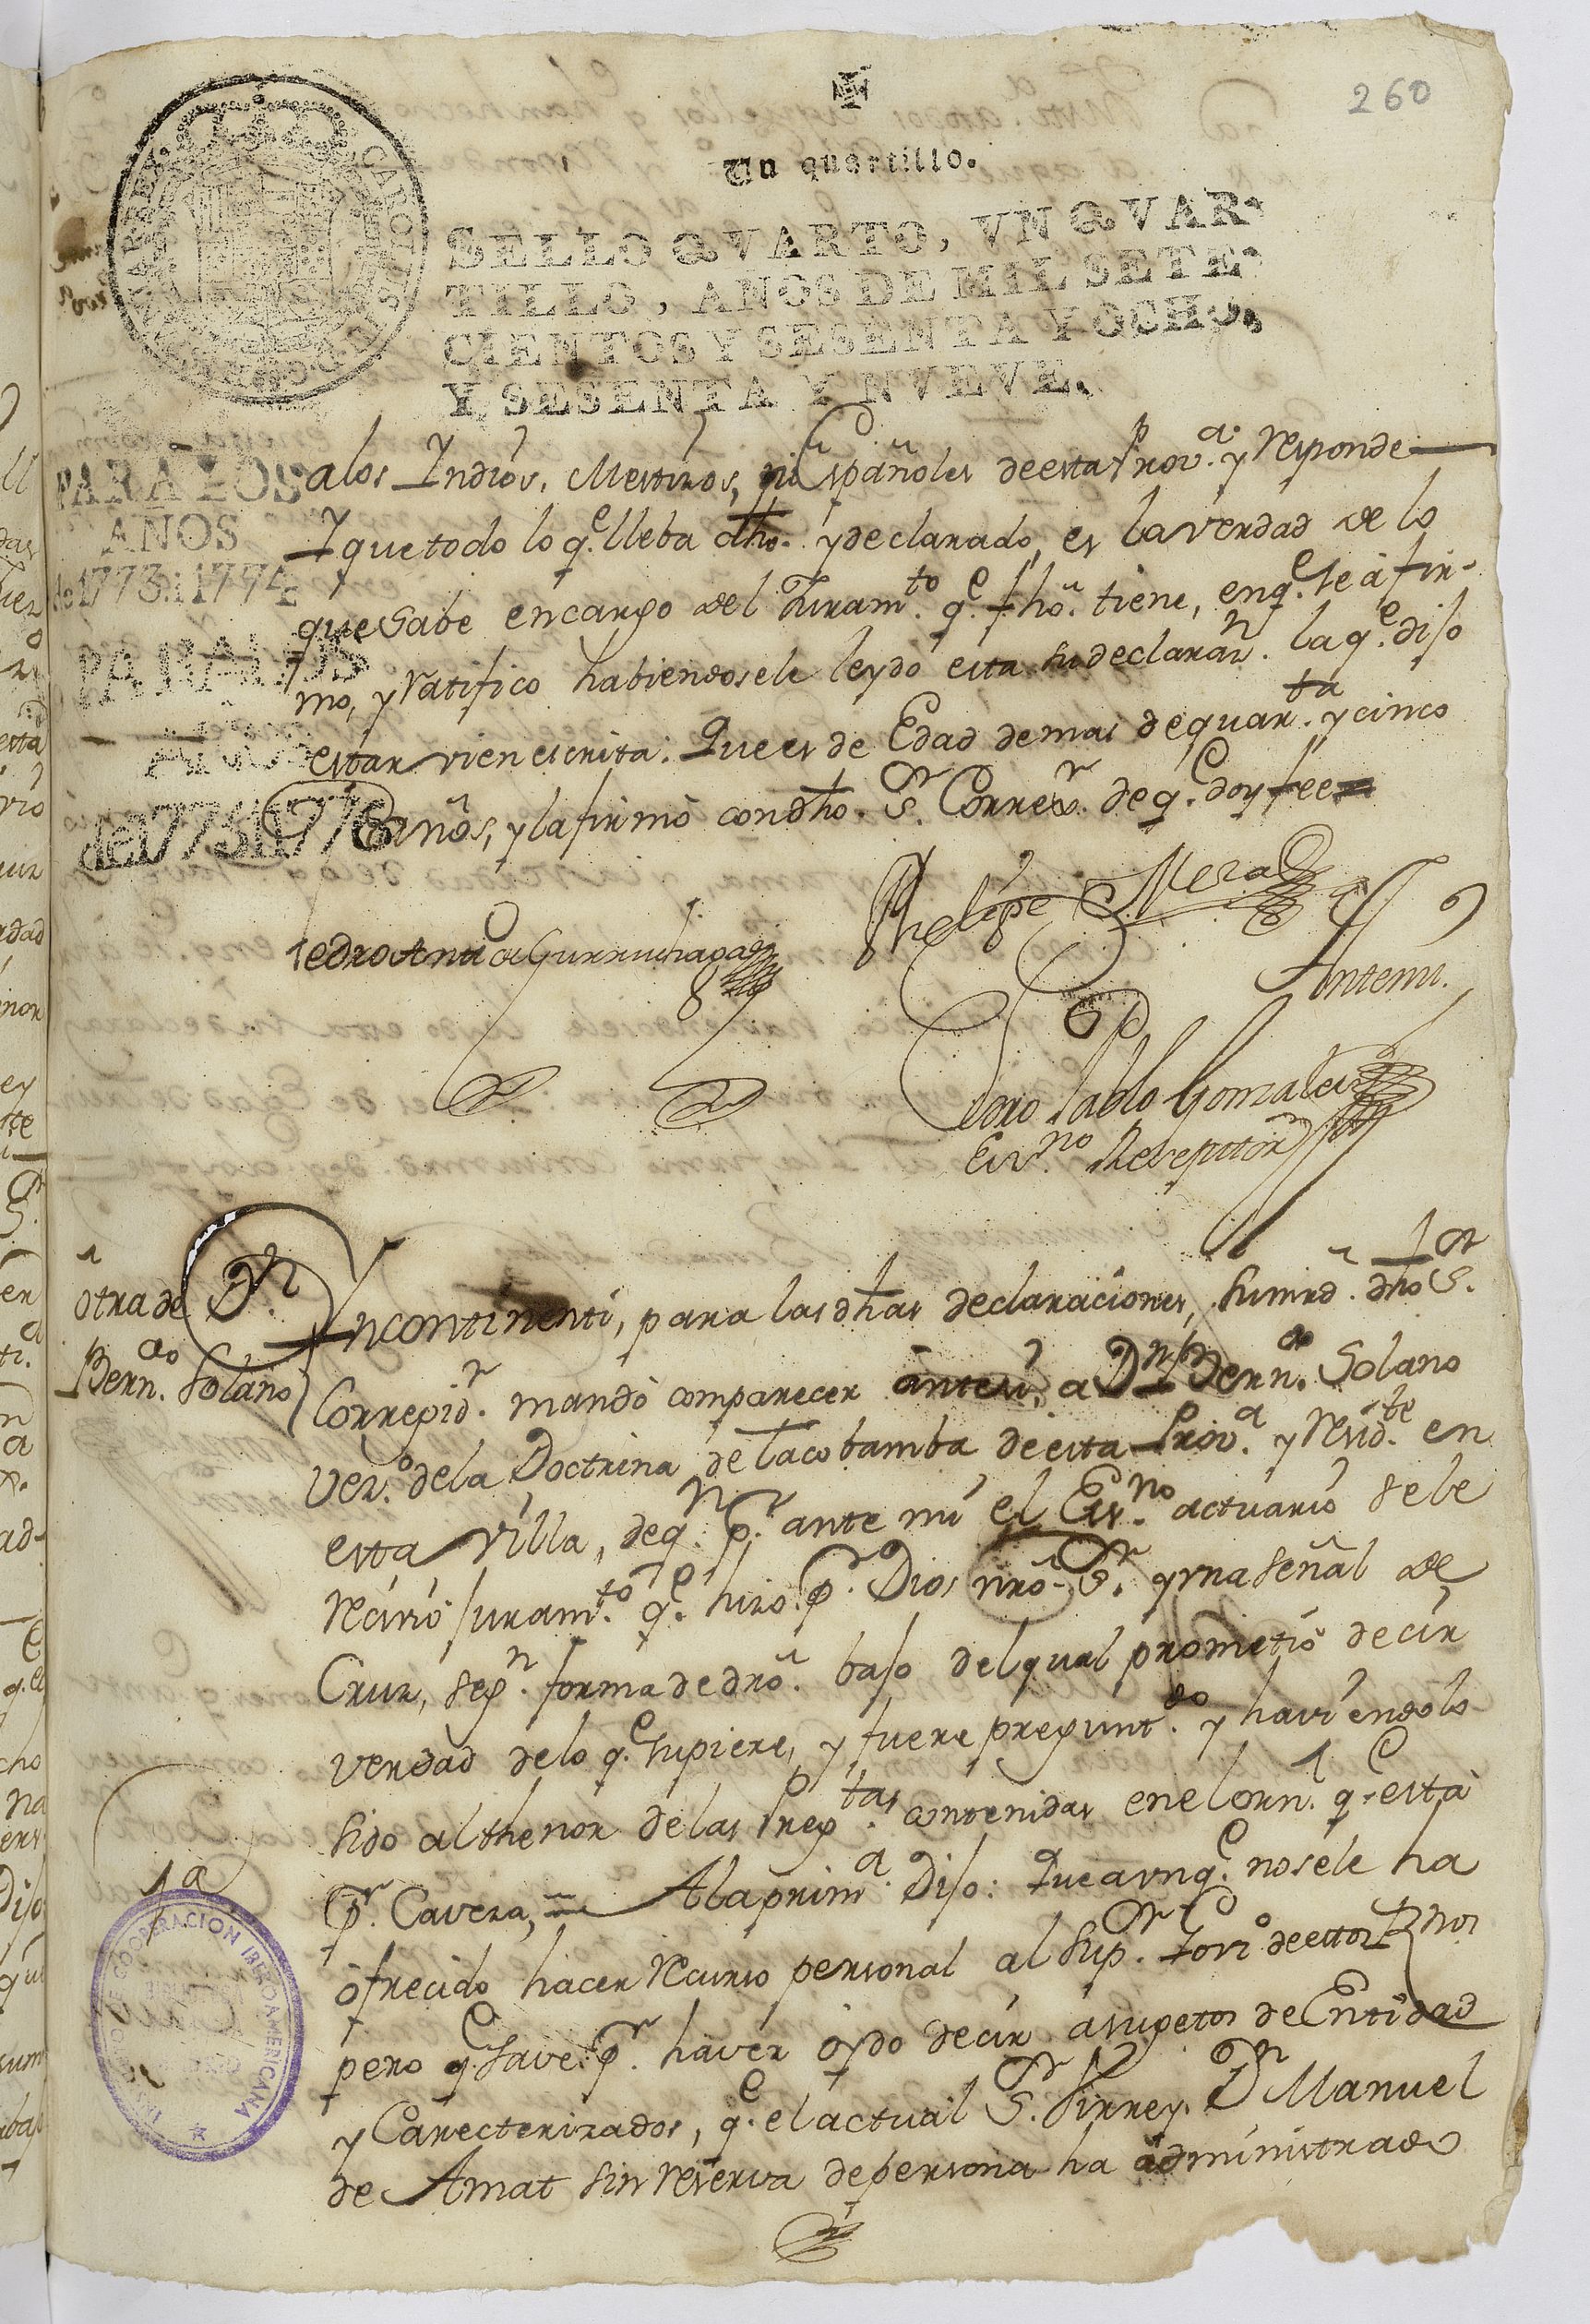 260
Un quartillo.
SELLO QVARTO, VN QVAR-
TILLO, AÑOS DE MIL SETE-
CIENTOS Y SESENTA Y OCHO,
Y SESENTA Y NVEVE.
PARA LOS
AÑOS
de 1773. i 1774
PARA LOS
AÑOS
de 1775 i 1776
alos Indios, Mestizos, ni Españoles deesta Prov.ª y responde
I que todo lo q.e lleba dho. y declarado, es la verdad de lo
que Sabe en cargo del Juram.to q.e fho. tiene, en q.e se afir-
mo, y ratifico habiendosele leydo esta su declaraz.n la q.e dijo
estar vien escrita: Que es de Edad de mas de quar.ta y cinco
años, y la firmò con dho. S.r Correx.r de q.e doy fee
Phelipe Meza
Antemi.
Pedro Pablo Gonzales
Esv.no Receptor
otra de D.n
Bern.do Solano
Incontinenti, para las dhas declaraciones, su mrd. dho S.r
Correxid.r mandò comparecer ante si, a D.n Bern.do Solano
vez.o de la Doctrina de Tacobamba de esta Prov.a y resid.te en
esta Villa, de q.n p.r ante mi el Esv.no actuario se le
recivió juram.to q.e hizo p.r Dios nrò S.r y vna señal de
Cruz, seg.n forma de dro. bajo del qual prometió decir
verdad de lo q.e supiere, y fuere pregunt.do y haviendolo
sido al thenor de las Preg.tas contenidas en el orn. q.e està
p.r Caveza, = A la prim.a Dijo: Que aunq.e nosele ha
1a
ofrecido hacer recurso personal al Sup.r Govi.o de estos Rnos
pero q.e save p.r haver oydo decir a sugetos de Entidad
y Carecterizados, q.e el actual S.r Virrey D.n Manuel
de Amat sin reserva de persona ha administrado
COOPERACION IBEROAMERICANA